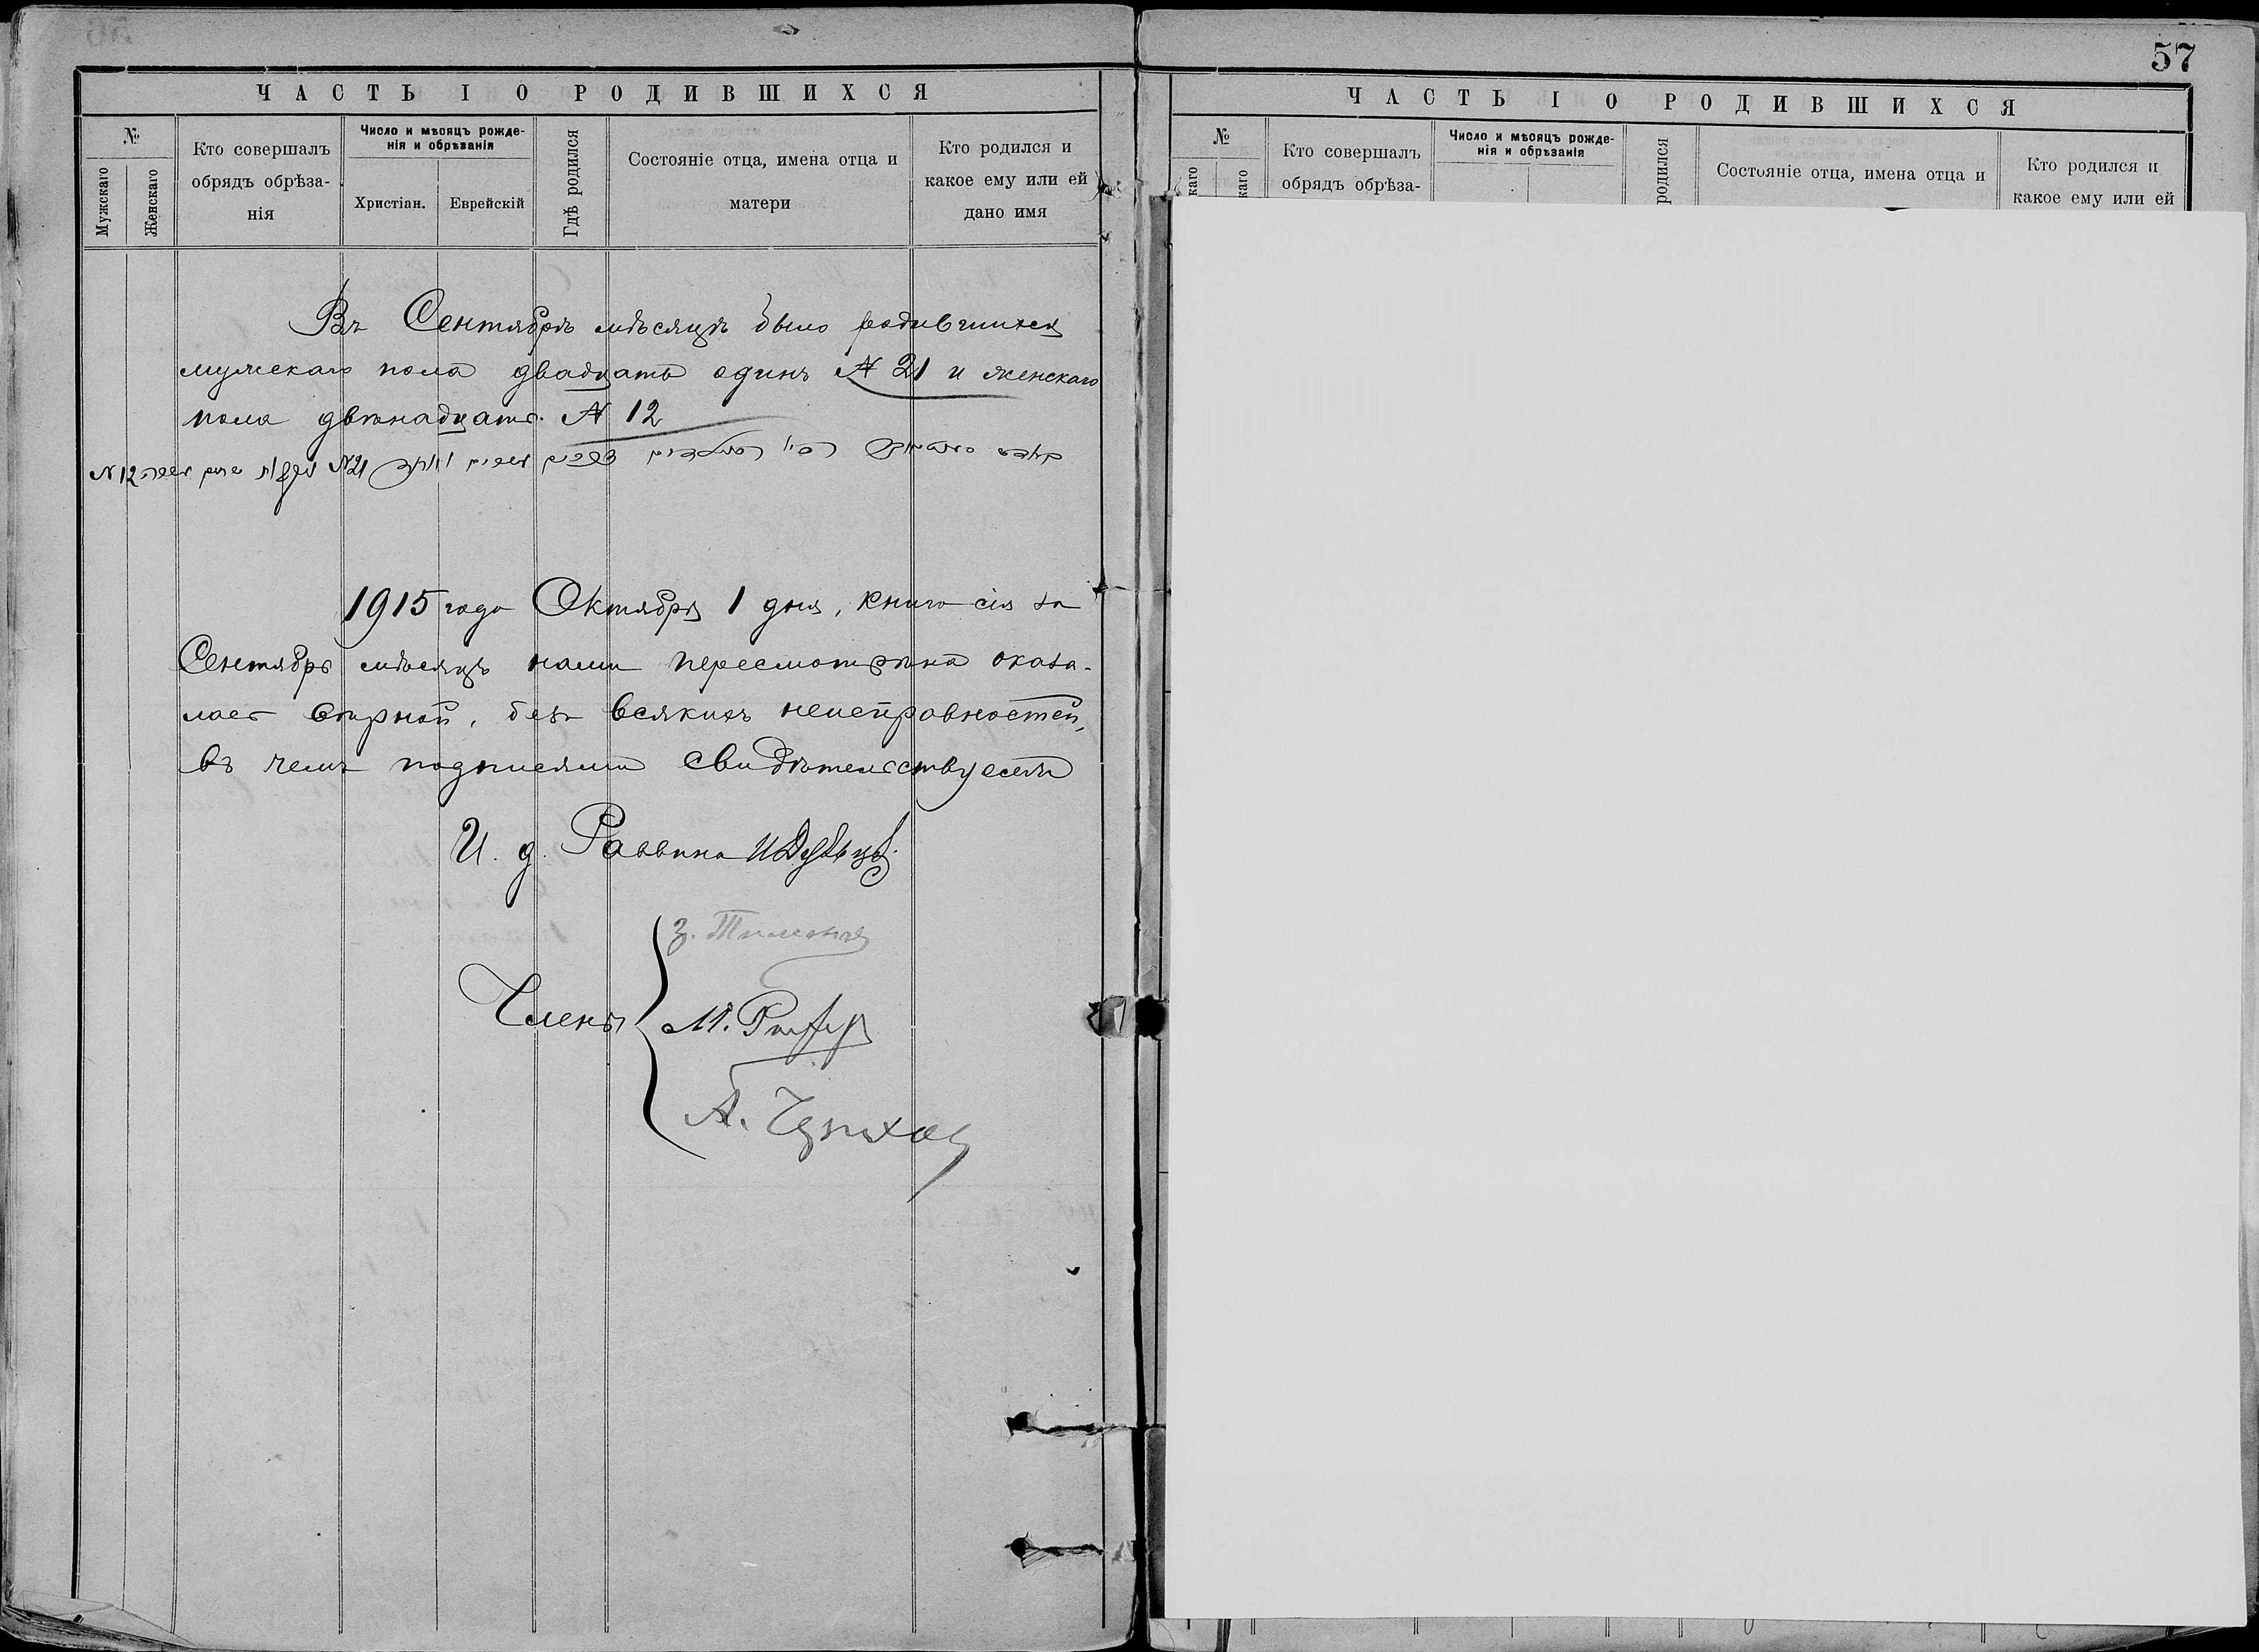 57
ЧАСТЬ I О РОДИВШИХСЯ
№
Мужскаго
Женскаго
Кто совершалъ
обрядъ обрѣза-
нія
Число и мѣсяцъ рожде-
нія и обрѣзанія
Христіан.
Еврейскій
Гдѣ родился
Состояніе отца, имена отца и
матери
Кто родился и
какое ему или ей
дано имя
Въ Сентябрѣ мѣсяцѣ было родившихся
мужскаго пола двадцать одинъ № 21 и женскаго
пола двѣнадцать. № 12
N 12 N 21
1915 года Октября 1 дня, книга сія за
Сентябрь мѣсяцъ нами пересмотрѣна оказа-
лась вѣрной, безъ всякихъ неисправностей,
въ чемъ подписями свидѣтельствуемъ
И. д. Раввина
Члены
М.
А.
ЧАСТЬ I О РОДИВШИХСЯ
№
каго
каго
Кто совершалъ
обрядъ обрѣза-
Число и мѣсяцъ рожде-
нія и обрѣзанія
родился
Состояніе отца, имена отца и
Кто родился и
какое ему или ей